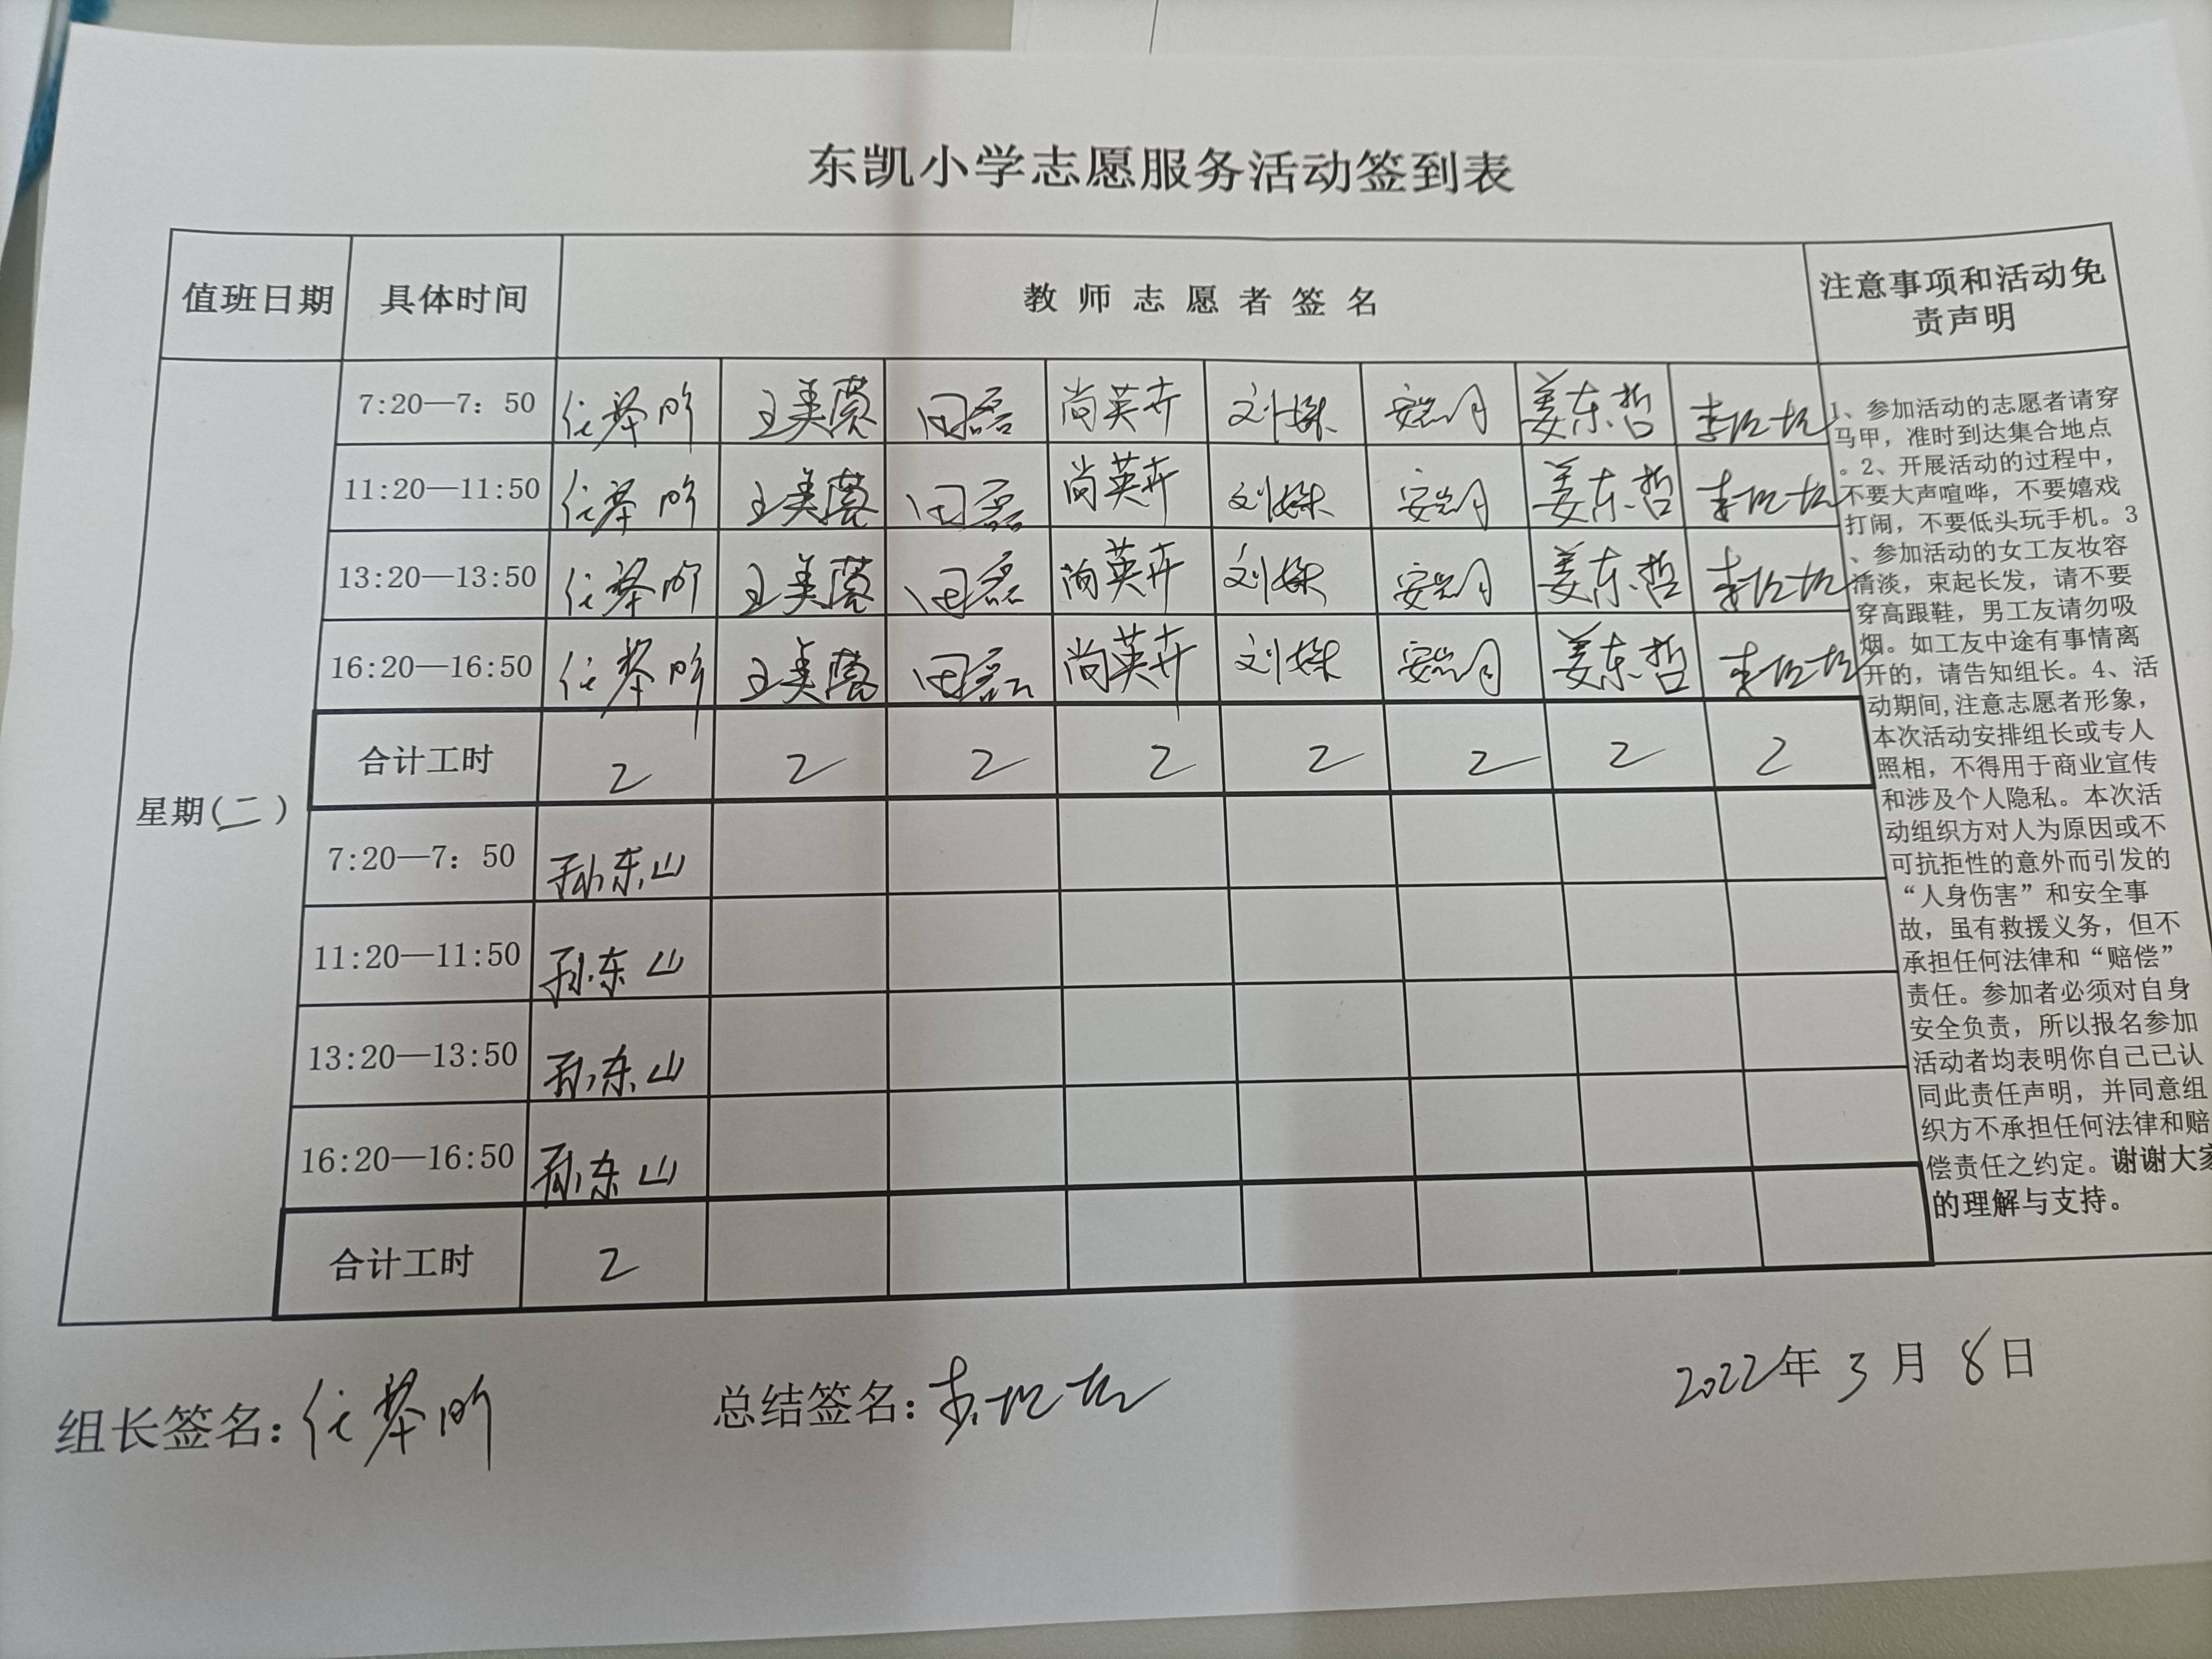 东凯小学志愿服务活动签到表
值班日期 具体时间 教师志愿者签名 注意事项和活动免责声明
星期(二)
7:20—7：50 王美蓉 田磊 尚英卉 刘姝 姜东哲
11:20—11:50 王美蓉 田磊 尚英卉 刘姝 姜东哲
13:20—13:50 王美蓉 田磊 尚英卉 刘姝 姜东哲
16:20—16:50 王美蓉 田磊 尚英卉 刘姝 姜东哲
合计工时 2 2 2 2 2 2 2 2
7:20—7：50 孙东山
11:20—11:50 孙东山
13:20—13:50 孙东山
16:20—16:50 孙东山
合计工时 2
1、参加活动的志愿者请穿
马甲，准时到达集合地点
。2、开展活动的过程中，
不要大声喧哗，不要嬉戏
打闹，不要低头玩手机。3
、参加活动的女工友妆容
清淡，束起长发，请不要
穿高跟鞋，男工友请勿吸
烟。如工友中途有事情离
开的，请告知组长。4、活
动期间,注意志愿者形象，
本次活动安排组长或专人
照相，不得用于商业宣传
和涉及个人隐私。本次活
动组织方对人为原因或不
可抗拒性的意外而引发的
“人身伤害”和安全事
故，虽有救援义务，但不
承担任何法律和“赔偿”
责任。参加者必须对自身
安全负责，所以报名参加
活动者均表明你自己已认
同此责任声明，并同意组
织方不承担任何法律和赔
偿责任之约定。谢谢大家
的理解与支持。
组长签名： 总结签名： 2022年3月8日